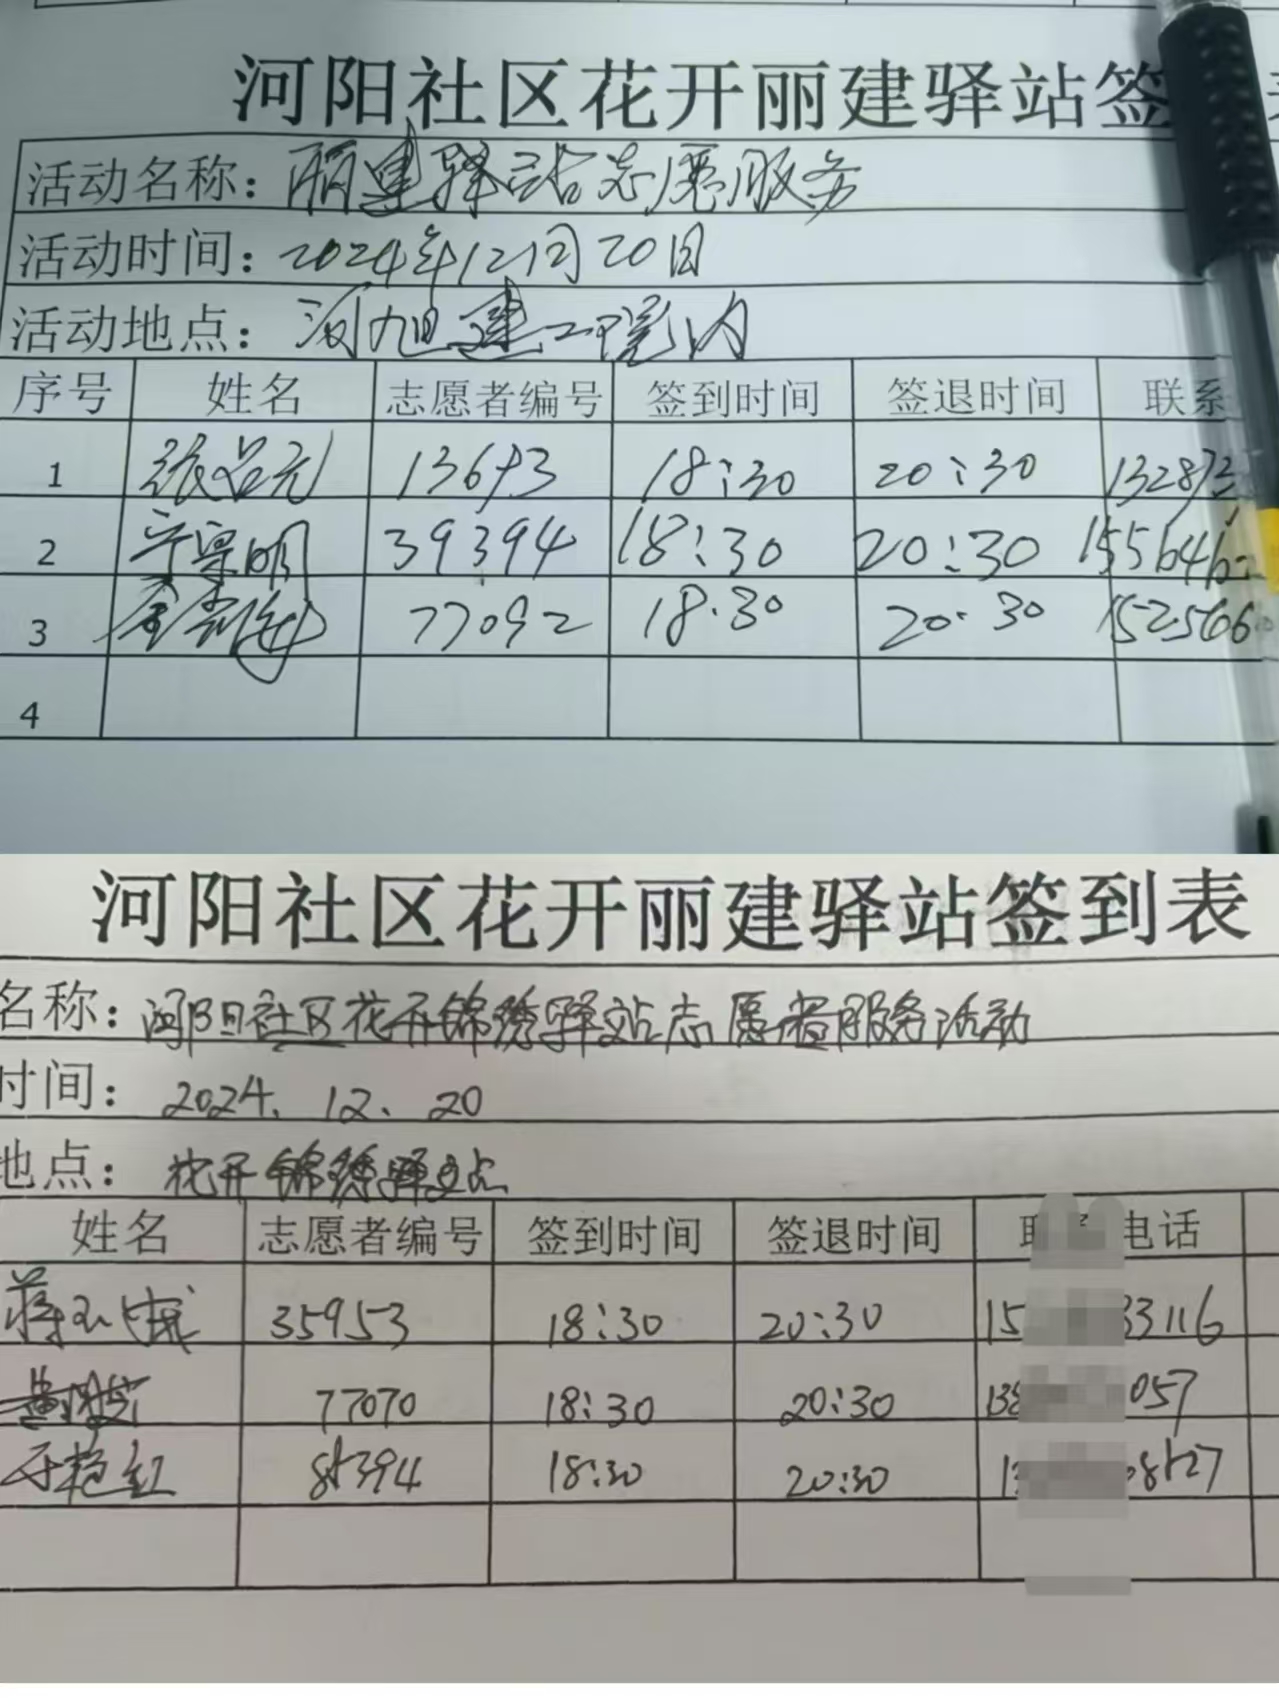 河阳社区花开丽建驿站签
活动名称：丽建驿站志愿服务
活动时间：2024年12月20日
活动地点：河旭建工院内
序号 姓名 志愿者编号 签到时间 签退时间 联系
1 张品元 13693 18:30 20:30 132873
2 39394 18:30 20:30 1556462
3 77092 18:30 20:30 152566
4
河阳社区花开丽建驿站签到表
名称：河阳社区花开锦绣驿站志愿者服务活动
时间：2024.12.20
地点：花开锦绣驿站
姓名 志愿者编号 签到时间 签退时间 电话
35953 18:30 20:30 15 33116
77070 18:30 20:30 138 057
于艳红 85394 18:30 20:30 13 8527